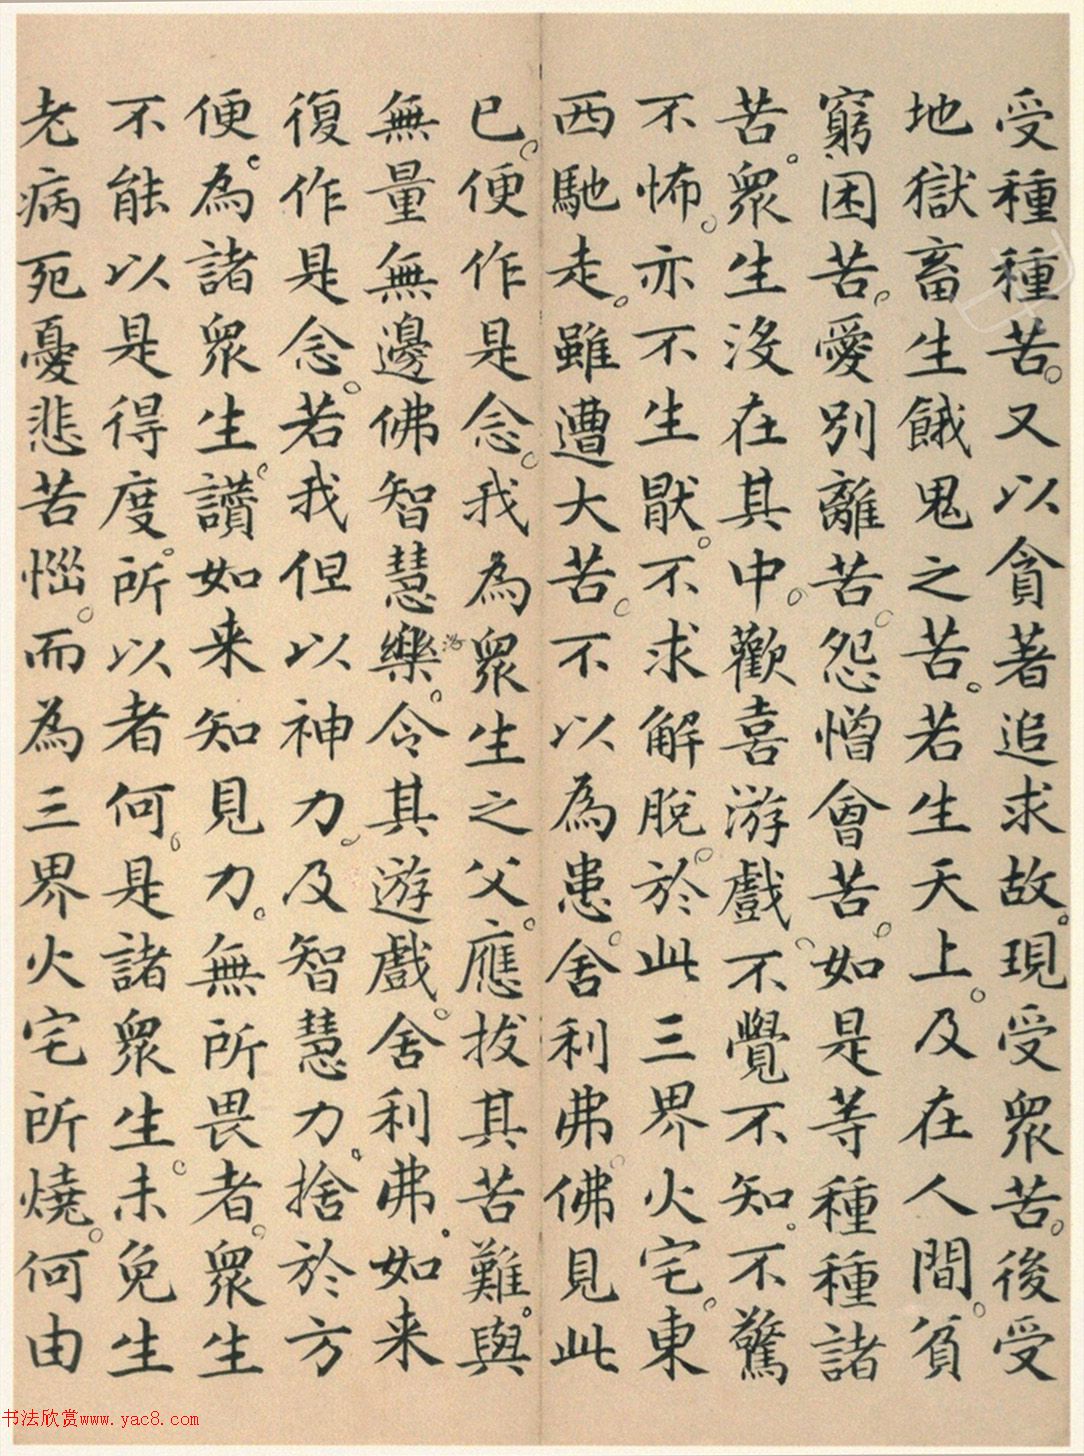 受種種苦。又以貪著追求故。現受眾苦。後受
地獄畜生餓鬼之苦。若生天上。及在人間。貧
窮困苦。愛別離苦。怨憎會苦。如是等種種諸
苦。眾生沒在其中。歡喜游戲。不覺不知。不驚
不怖。亦不生厭。不求解脫。於此三界火宅。東
西馳走。雖遭大苦。不以為患。舍利弗。佛見此
已。便作是念。我為眾生之父。應拔其苦難。與
無量無邊佛智慧樂。令其遊戲。舍利弗。如来
復作是念。若我但以神力。及智慧力。捨於方
便。為諸眾生。讚如来知見力。無所畏者。眾生
不能以是得度。所以者何。是諸眾生。未免生
老病死憂悲苦惱。而為三界火宅所燒。何由
书法欣赏www.yac8.com